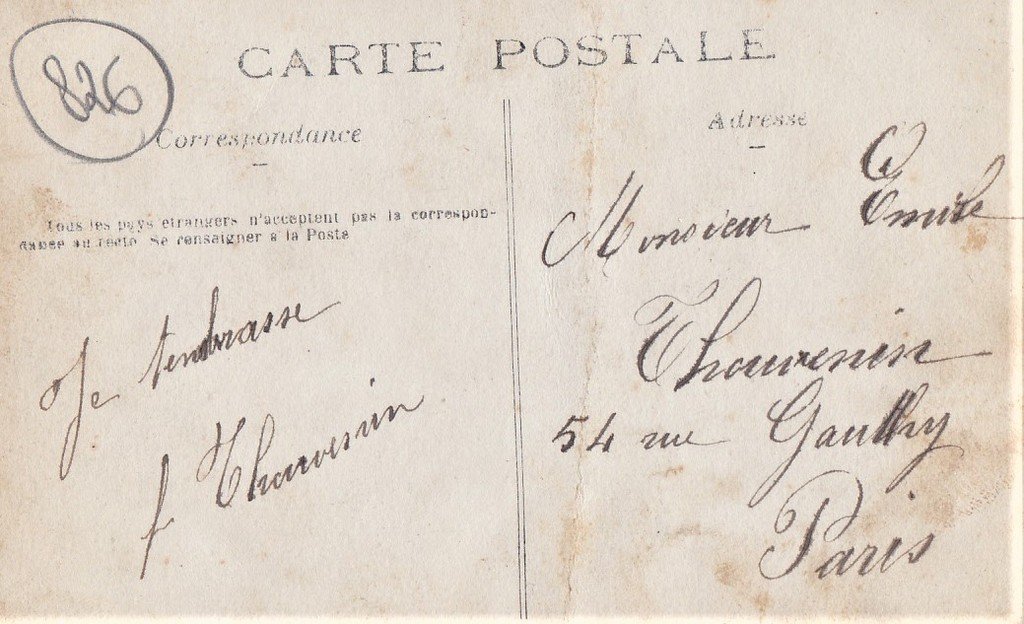 826
CARTE POSTALE
Correspondance
Adresse
Tous les pays étrangers n'acceptent pas la correspon-
dance au recto Se renseigner à la Poste
Je tembrasse
f Thouvenin
Monsieur Emile
Thouvenin
54 rue Gauthey
Paris